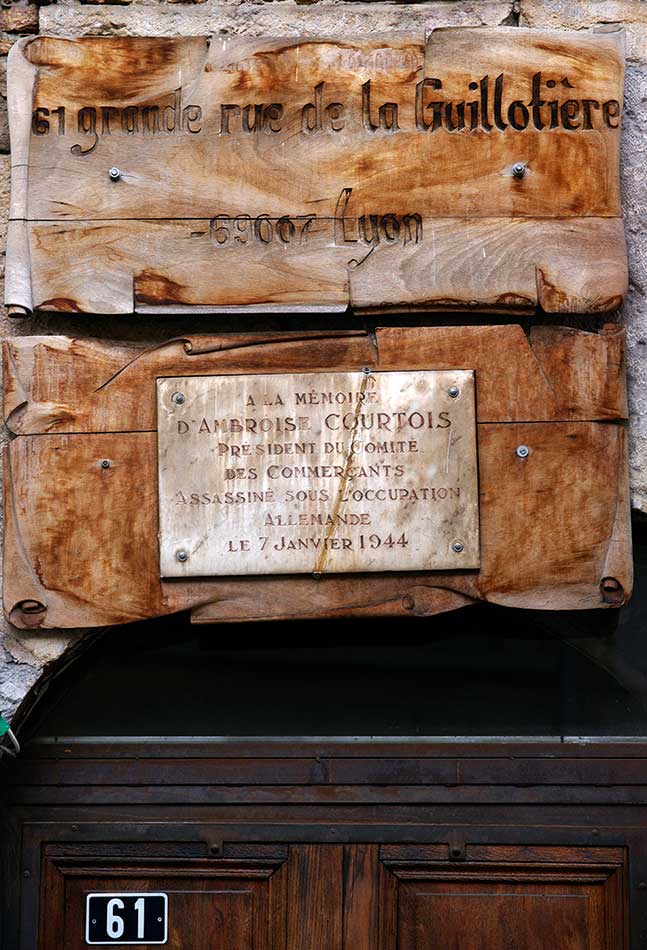 61 grande rue de la Guillotière
-69007 Lyon
A LA MÉMOIRE
D'AMBROISE COURTOIS
PRÉSIDENT DU COMITÉ
DES COMMERÇANTS
ASSASSINÉ SOUS L'OCCUPATION
ALLEMANDE
LE 7 JANVIER 1944
61